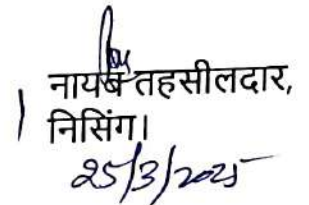 नायब तहसीलदार,
निसिंग।
25/3/2025